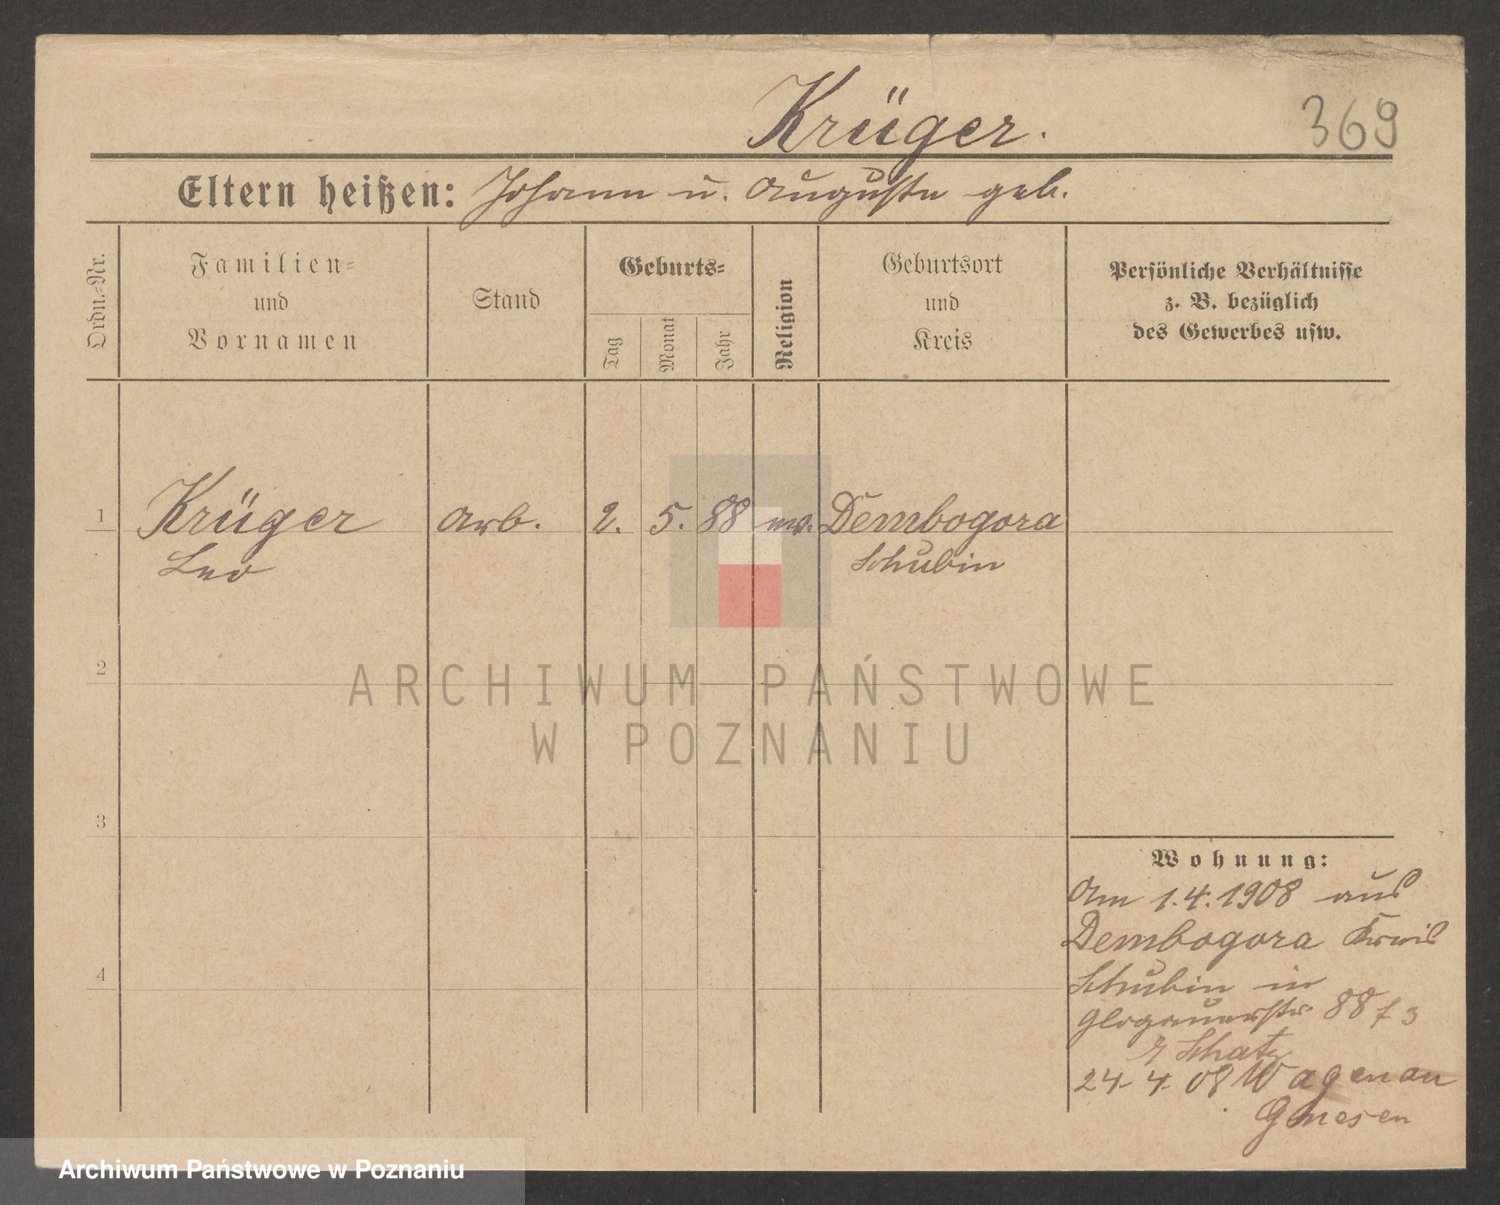 Krüger.
369
Eltern heißen: Johann u. Auguste geb.
Ordn.-Nr.
Familien-
und
Vornamen
Stand
Geburts-
Tag
Monat
Jahr
Religion
Geburtsort
und
Kreis
Persönliche Verhältnisse
z. B. bezüglich
des Gewerbes usw.
1 Krüger Arb. 2. 5. 88 ev. Dembogora
Leo Schubin
2
3
4
Wohnung:
Am 1.4.1908 aus
Dembogora Kreis
Schubin in
Glogauerstr. 88
Schatz
24. 4. 08 Wagenau
Gnesen
ARCHIWUM PAŃSTWOWE
W POZNANIU
Archiwum Państwowe w Poznaniu